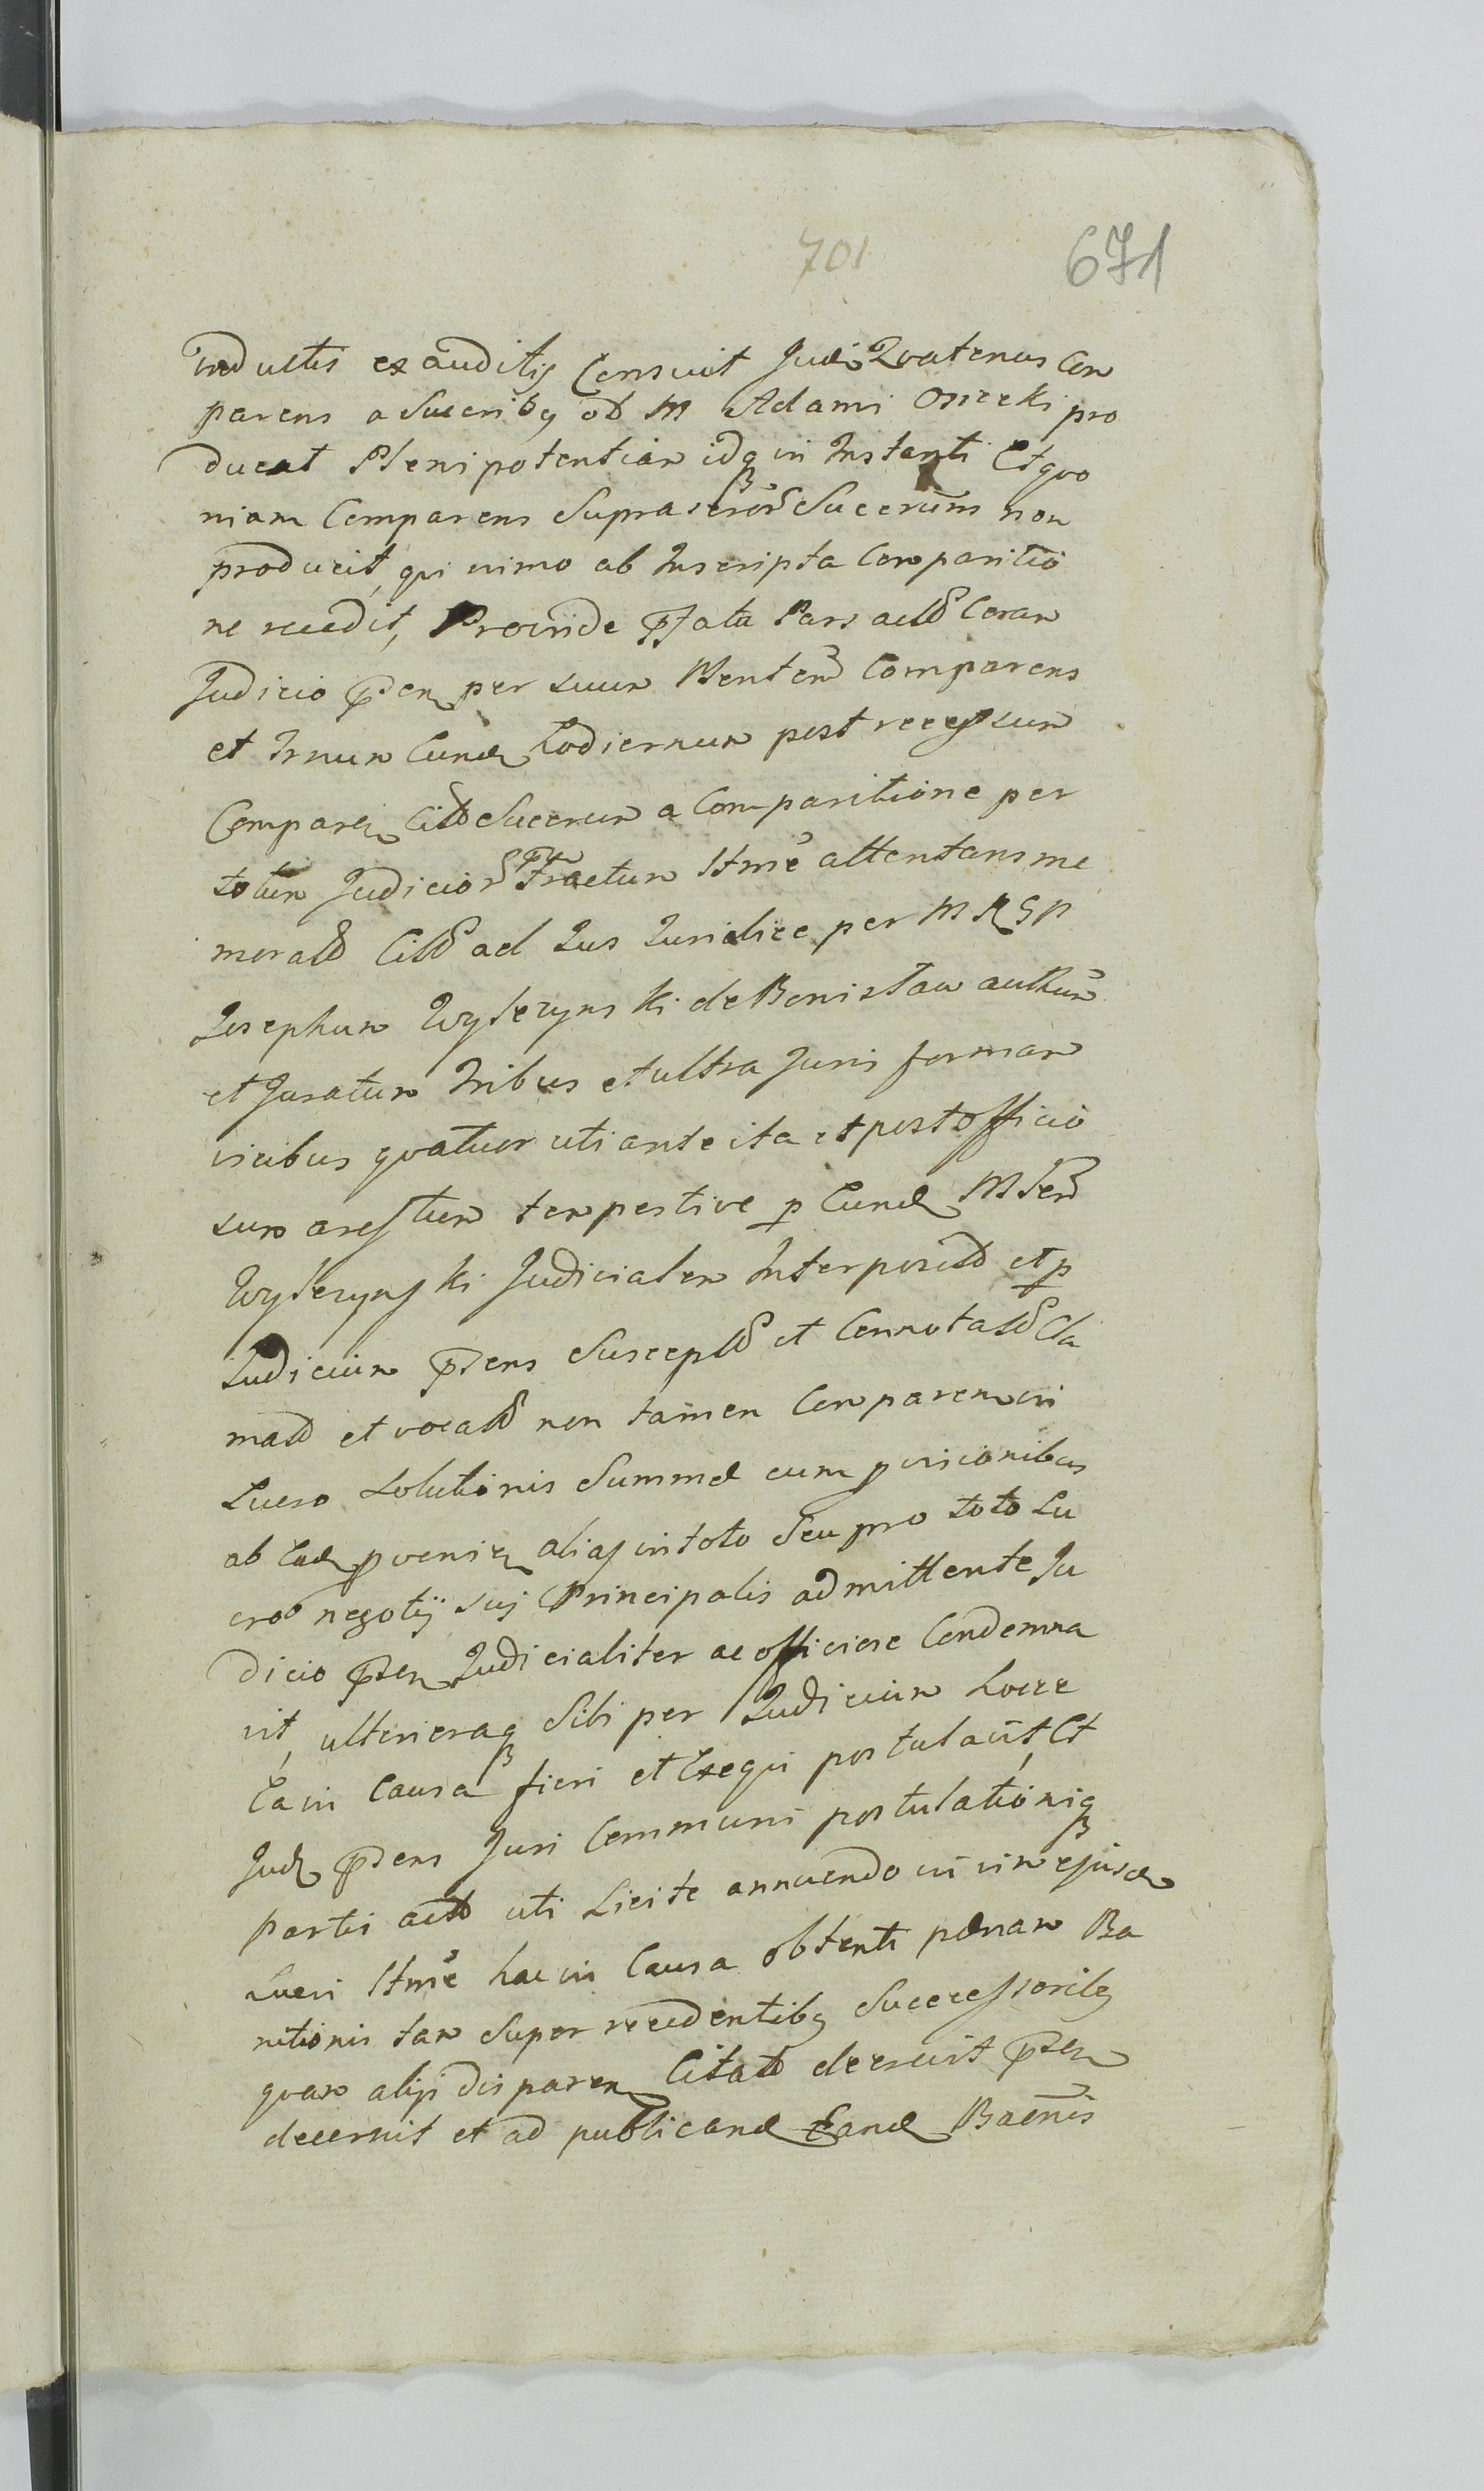 701 671
inductis ex auditis Censuit Judm Quatenus Com
parens a Succribq ol M Adami Osiecki pro
ducat Plenipotentiam idq in Instanti Et quo
niam Comparens Suprascror Succrum non
producit, qui nimo ab Inscripta Comparitio
ne recedit, Proinde pfata Pars act Coram
Judicio pnt per suum Plentem Comparens
et Trnum Eund hodiernum post recessum
Comparen Citt Succrum a Comparitione per
totum Judicior pnt Tractum Ittme attentans me
morat Citt ad Jus Juridice per M R G P
Josephum Wylezynski de Bonislaw authum
et Juratum Tribus et ultra Juris formam
vicibus quatuor uti ante ita et post officio
sum arestum tempestive p Eund M Gen
Wylezynski Judicialem Interposit et p
Judicium pnens Suscept et Connotat Cla
mat et vocat non tamen Comparen in
Lucro Solutionis Summæ cum pvisionibus
ab Ead pvenien alias in toto Seu pro toto Lu
cro negotij sui Principalis admittente Ju
dicio pnt Judicialiter ac officiose Condemna
vit, ulterioraq Sibi per Judicium Locce
Ea in Causa fieri et Exequi postulavit, Et
Judm pnens Juri Communi postulationiq
Partis act uti Licite annuendo in vim ejusd
Lucri Ittme hac in Causa obtenti pænam Ba
nitionis tam Super recedentibq Successoribq
quam alijs disparen Citat decrevit pnt
decernit et ad publicand Eand Baenis